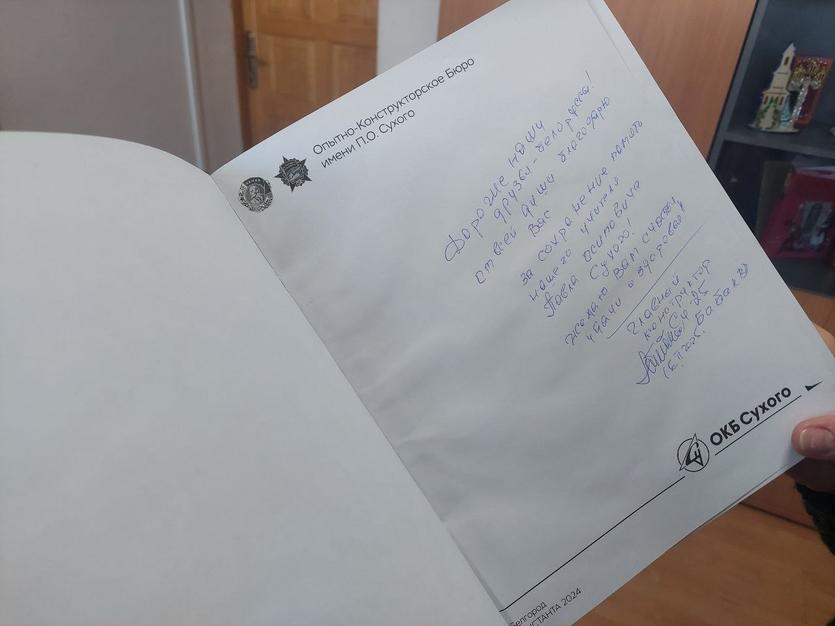 Опытно-Конструкторское Бюро
имени П.О. Сухого
Дорогие наши
друзья - белорусы!
от всей души благодарю
Вас
за сохранение памяти
нашего учителя
Павла Осиповича
Сухого!
Желаю Вам счастья,
удачи и здоровья!
Главный
конструктор
Су-25
Бабак В
ОКБ Сухого
Белгород
КОНСТАНТА 2024